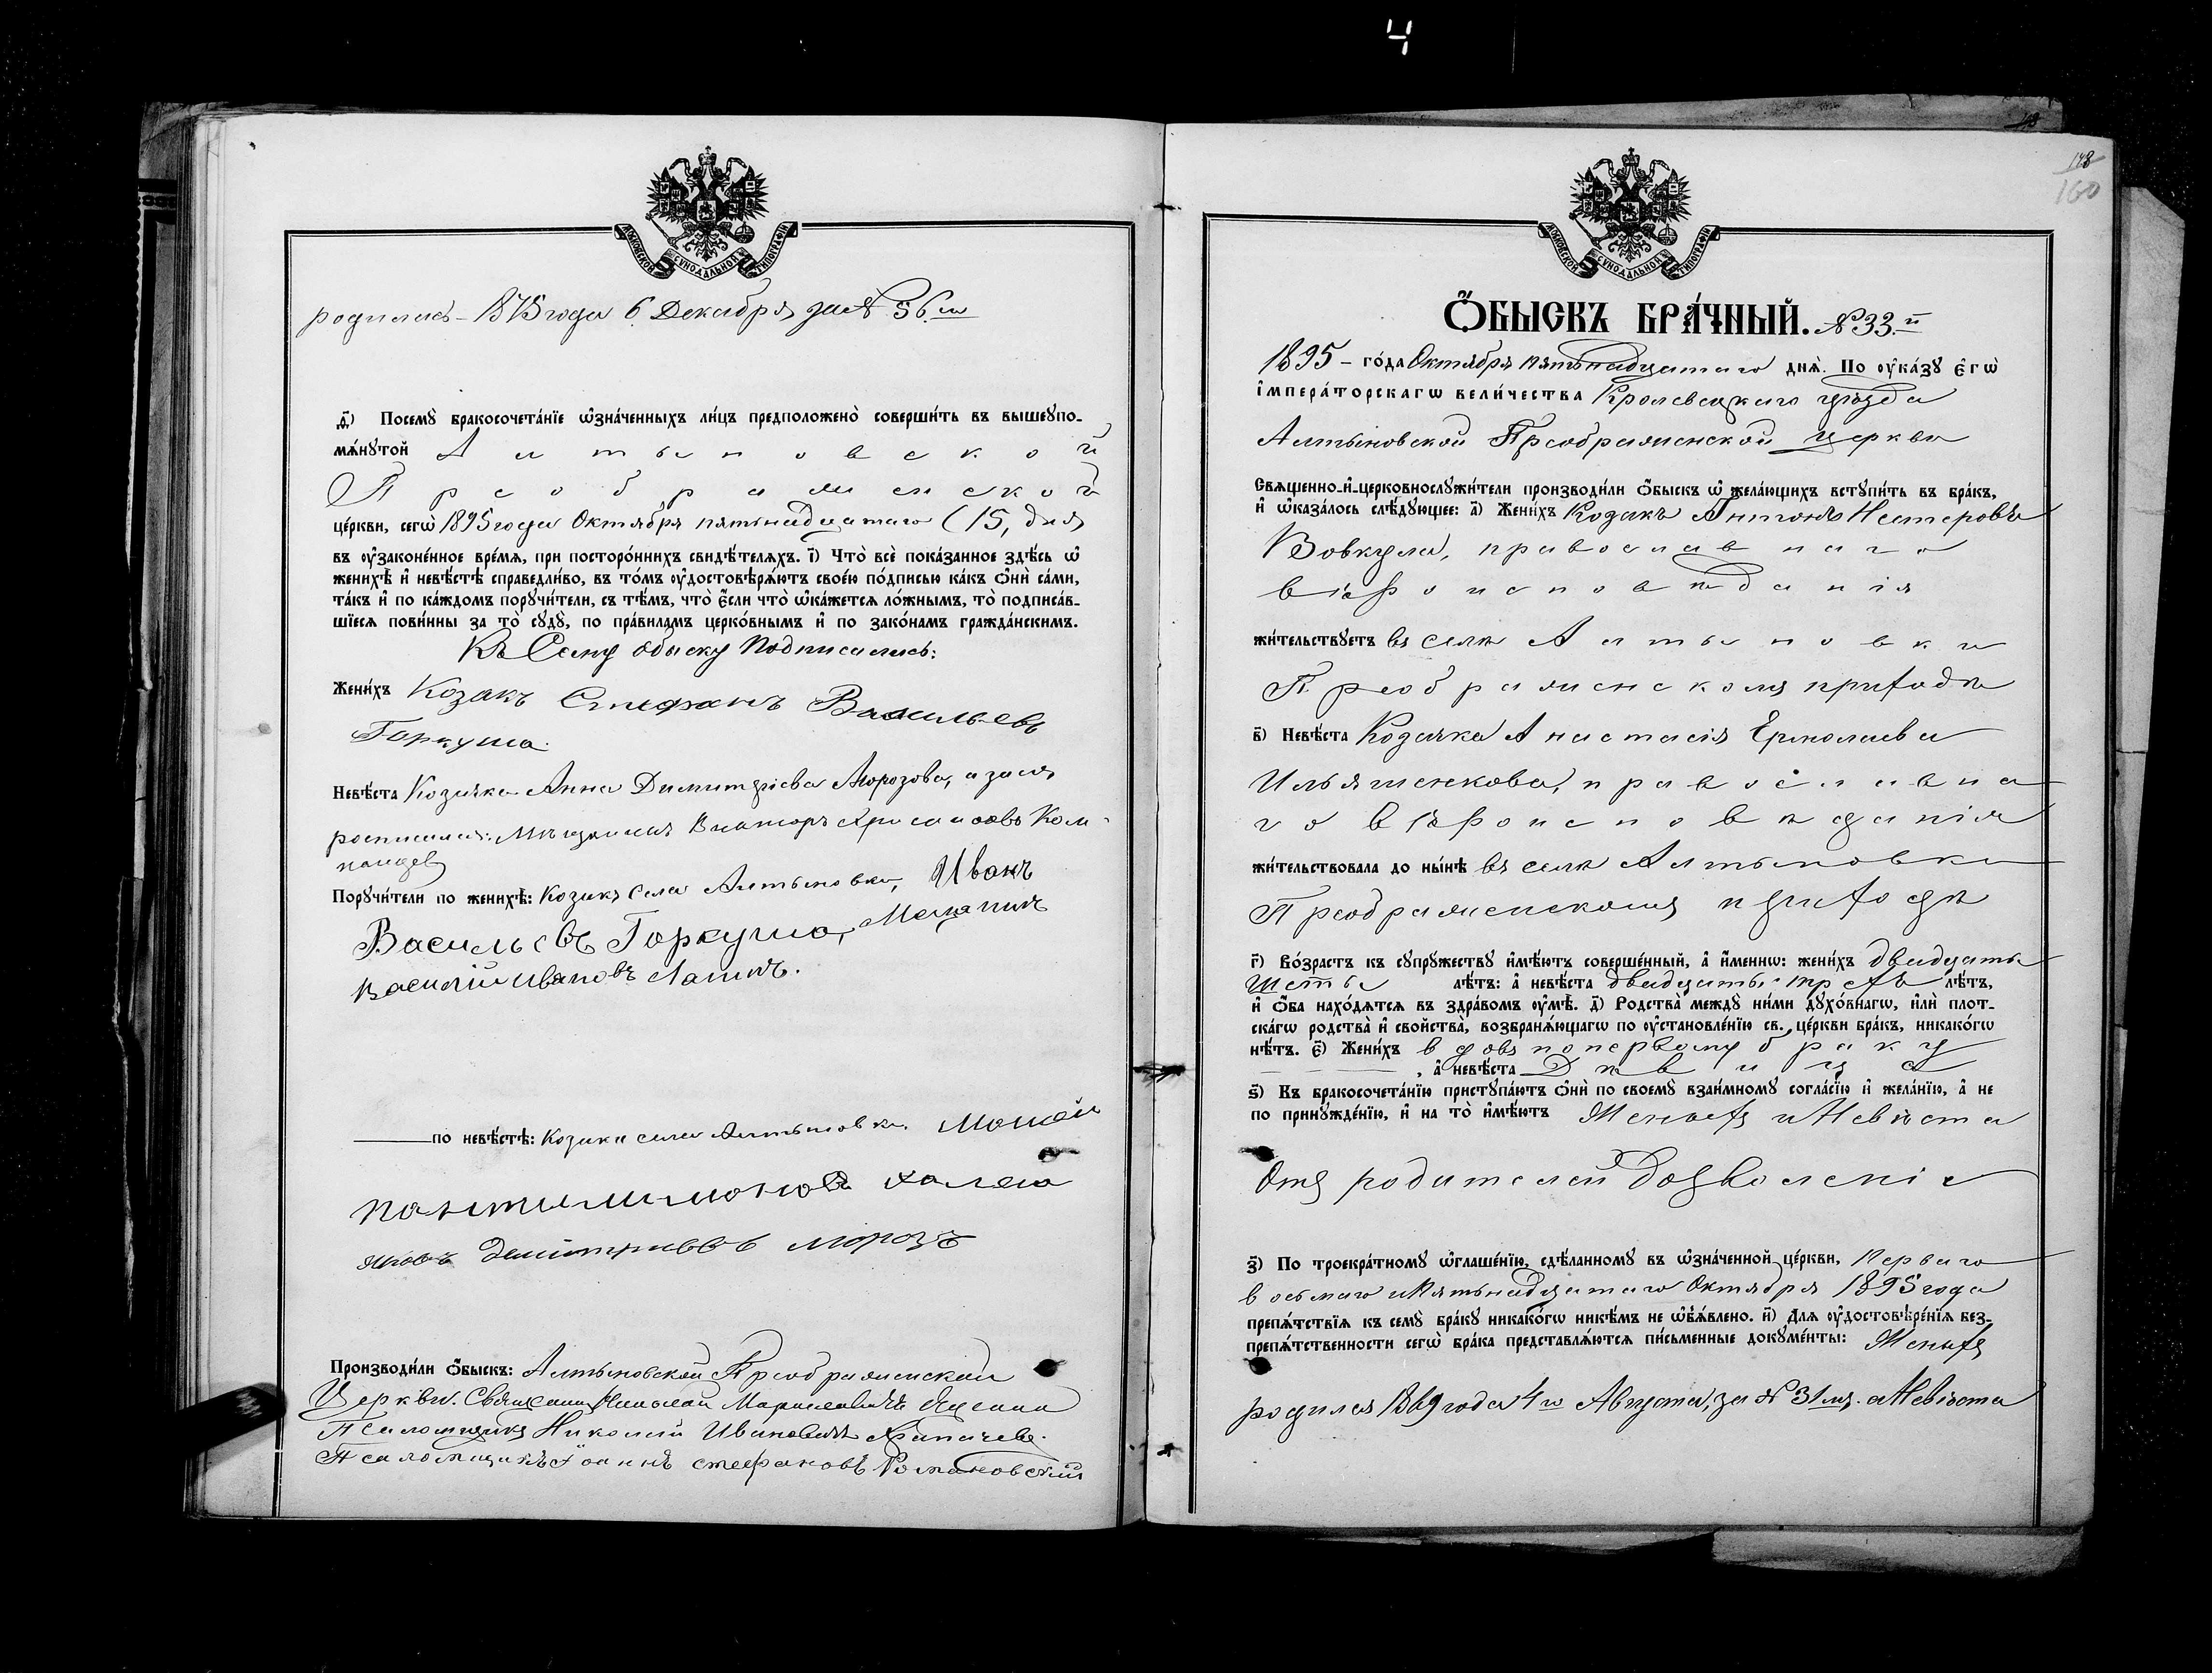 Ч
МОСКОВСКОЙ СУНОДАЛЬНОЙ ТИПОГРАФІИ
родилась 1875 года 6 Декабря за № 56.м
Посемꙋ̀ бракосочета́нїе ѡ҆зна́ченныхъ ли́цъ предположено̀ соверши́ть въ вышеꙋпо-
мѧ́нꙋтой Алтыновской
Преображенской
це́ркви, сегѡ̀ 1895 года Октября пятьнадцатаго (15, дня
въ ᲂу҆законе́нное вре́мѧ, при посторо́ннихъ свидѣ́телѧхъ. і҃) Что̀ всѐ пока́занное здѣ́сь ѡ҆
женихѣ̀ и҆ невѣ́стѣ справедли́во, въ то́мъ ᲂу҆достовѣрѧ́ютъ свое́ю по́дписью ка́къ ѻ҆нѝ са́ми,
та́къ и҆ по ка́ждомъ порꙋчи́тели, съ тѣ́мъ, что̀ є҆́сли что̀ ѡ҆ка́жетсѧ ло́жнымъ, то̀ подписа́в-
шїесѧ пови́нны за то̀ сꙋдꙋ̀, по пра́виламъ церко́внымъ и҆ по зако́намъ гражда́нскимъ.
Къ Сему обыску подписались:
Жени́хъ Козакъ Стефанъ Васильевъ
Горкуша
Невѣ́ста Козачка Анна Димитріева Морозова, а за ея
росписался: Мѣщанинъ Викторъ
Порꙋчи́тели по женихѣ̀: Козакъ села Алтыновки, Иванъ
Васильевъ Горкуша, Мещанинъ
Василій Ивановъ Лапинъ.
по невѣ́стѣ: Козаки села Алтыновки. Мойсей
Пантилимонов Халеа
яковъ Демитриевъ Морозъ
Производи́ли ѻ҆́быскъ: Алтыновской Преображенской
Церкви. Священник Николай
Псаломщикъ Николай Ивановичъ
Псаломщикъ Іоаннъ Стефановъ Романовскій
118
160
МОСКОВСКОЙ СУНОДАЛЬНОЙ ТИПОГРАФІИ
Ѻ҆́БЫСКЪ БРА́ЧНЫЙ. № 33.й
1895 – го́да Октября пятьнадцатаго днѧ̀. По ᲂу҆ка́зꙋ є҆гѡ̀
і҆мпера́торскагѡ вели́чества Кролевецкаго уѣзда
Алтыновской Преображенской церкви
Свѧщенно-и҆-церковнослꙋжи́тели производи́ли ѻ҆́быскъ ѡ҆ жела́ющихъ встꙋпи́ть въ бра́къ,
и҆ ѡ҆каза́лось слѣ́дꙋющее: а҃) Жени́хъ Козакъ Антонъ Нестеровъ
Вовкула, православнаго
вѣроисповѣданія
жи́тельствꙋетъ въ селѣ Алтыновки
Преображенскомъ приходѣ
в҃) Невѣ́ста Козачка Анастасія Ермолаева
Ильяшенкова, православна
го вѣроисповѣданія
жи́тельствовала до ны́нѣ въ селѣ Алтыновки
Преображенскомъ приходѣ
г҃) Во́зрастъ къ сꙋпрꙋжествꙋ и҆мѣ́ютъ соверше́нный, а҆ и҆́менно: жени́хъ двадцать
шесть лѣ́тъ: а҆ невѣ́ста двадцать трехъ лѣ́тъ,
и҆ ѻ҆́ба нахо́дѧтсѧ въ здра́вомъ ᲂу҆мѣ̀. д҃) Родства̀ междꙋ̀ ни́ми дꙋхо́внагѡ, и҆лѝ плот-
ска́гѡ родства̀ и҆ свойства̀, возбранѧ́ющагѡ по ᲂу҆становле́нїю св. це́ркви бра́къ, никако́гѡ
нѣ́тъ. є҃) Жени́хъ вдовъ по первому браку
, а҆ невѣ́ста Дѣвица
ѕ҃) Къ бракосочета́нїю пристꙋпа́ютъ ѻ҆нѝ по своемꙋ̀ взаи́мномꙋ согла́сїю и҆ жела́нїю, а҆ не
по принꙋжде́нїю, и҆ на то̀ и҆мѣ́ютъ Женихъ и Невѣста
Отъ родителей Дозволеніе
з҃) По троекра́тномꙋ ѡ҆глаше́нїю, сдѣ́ланномꙋ въ ѡ҆зна́ченной це́ркви, перваго
восьмаго и Пятьнадцатаго Октября 1895 года
препѧ́тствїѧ къ семꙋ̀ бра́кꙋ никако́гѡ никѣ́мъ не ѡ҆б̾ѧ́влено. и҃) Для ᲂу҆достовѣре́нїѧ без-
препѧ́тственности сегѡ̀ бра́ка представлѧ́ютсѧ пи́сьменные докꙋме́нты: Женихъ
родился 1869 года 4 го Августа, за № 31 мъ. а Невѣста